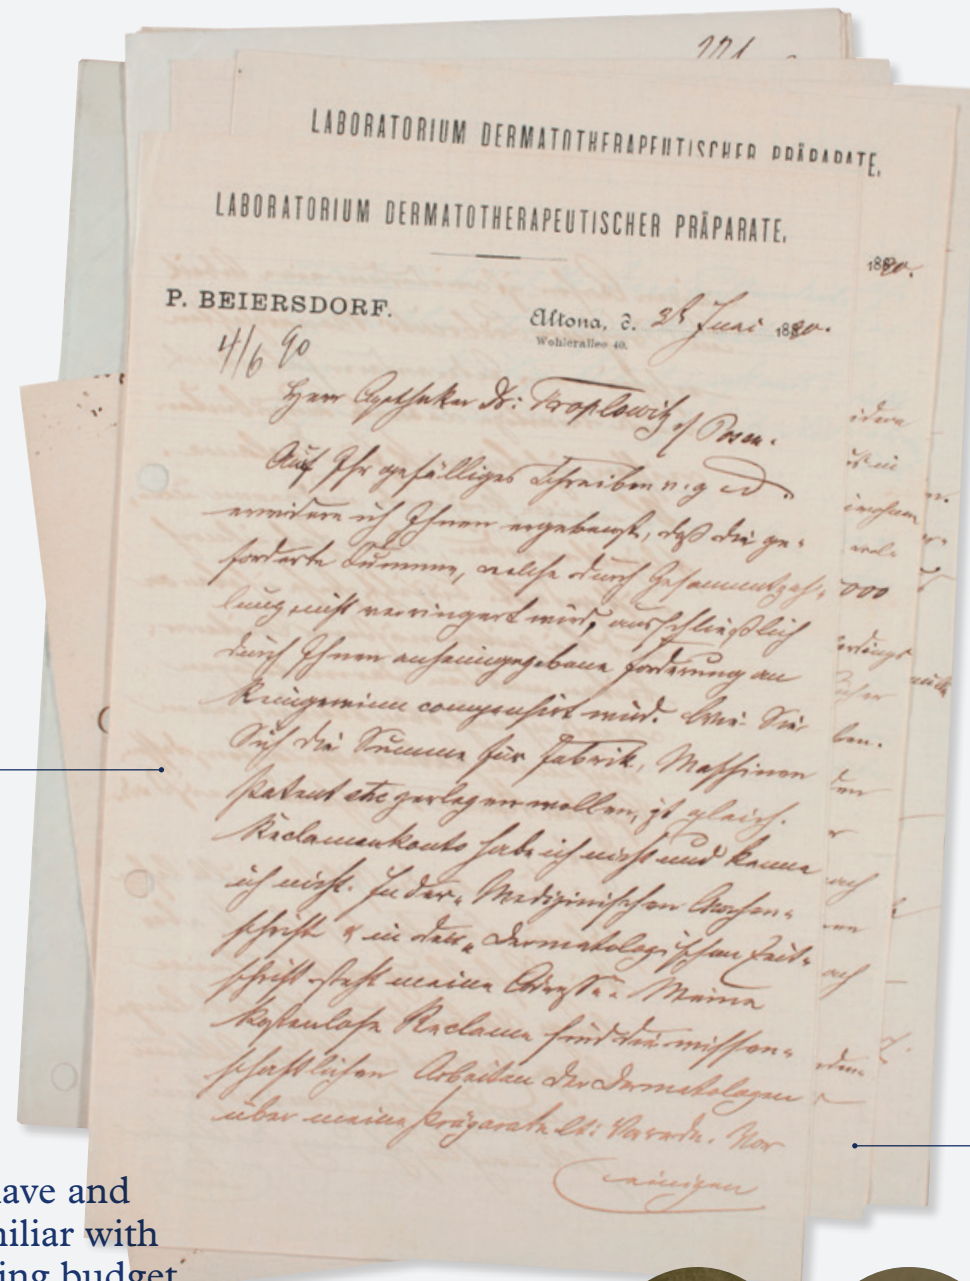 LABORATORIUM DERMATOTHERAPEUTISCHER PRÄPARATE.
188
LABORATORIUM DERMATOTHERAPEUTISCHER PRÄPARATE.
P. BEIERSDORF.
Altona, d. Juni 1890.
Wohlerallee 40.
4/6 90
Herr Apotheker Dr: Troplowitz / Posen.
Auf Ihr gefälliges Schreiben
erwidere ich Ihnen ergebenst, daß die ge-
forderte Summe, welche durch Gesammtzah-
lung nicht verringert wird, ausschließlich
durch Ihnen anheimgegebene Forderung an
Reingewinn compensirt wird. Wie Sie
Sich die Summe für Fabrik, Maschinen
Patent etc zerlegen wollen, ist gleich.
Reclamenkonto habe ich nicht und kenne
ich nicht. In der „Medizinischen Wochen-
schrift & in der „Dermatologischen Zeit-
schrift steht meine Adresse. Meine
kostenlose Reclame sind die wissen-
schaftlichen Arbeiten der Dermatologen
über meine Präparate. Vor
einigen
000
ben.
den
ach
ach
ave and
niliar with
ing budget